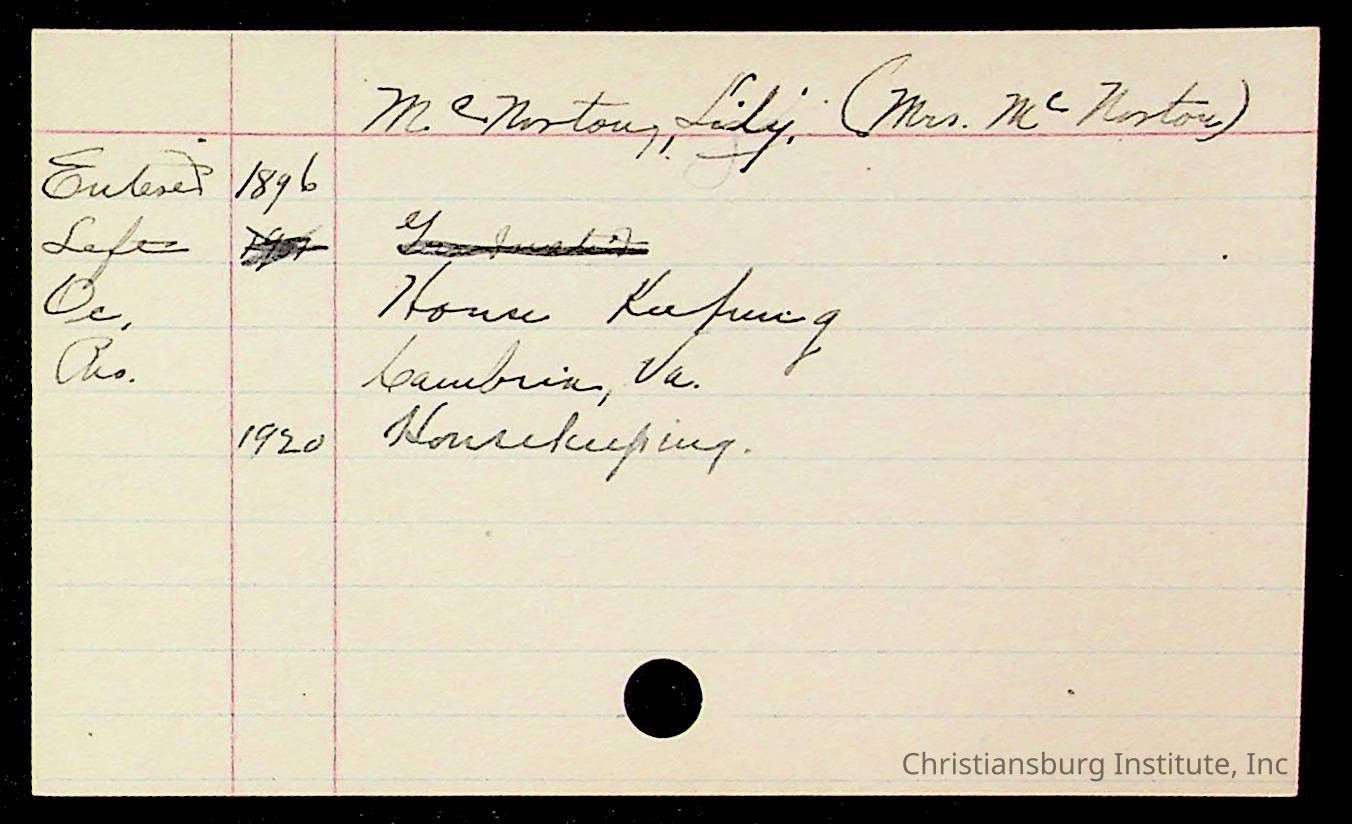 McNorton, Lily. (Mrs. McNorton)
Entered 1896
Left Graduated
Oc. House Keeping
Res. Cambria, Va.
1920 Housekeeping.
Christiansburg Institute, Inc